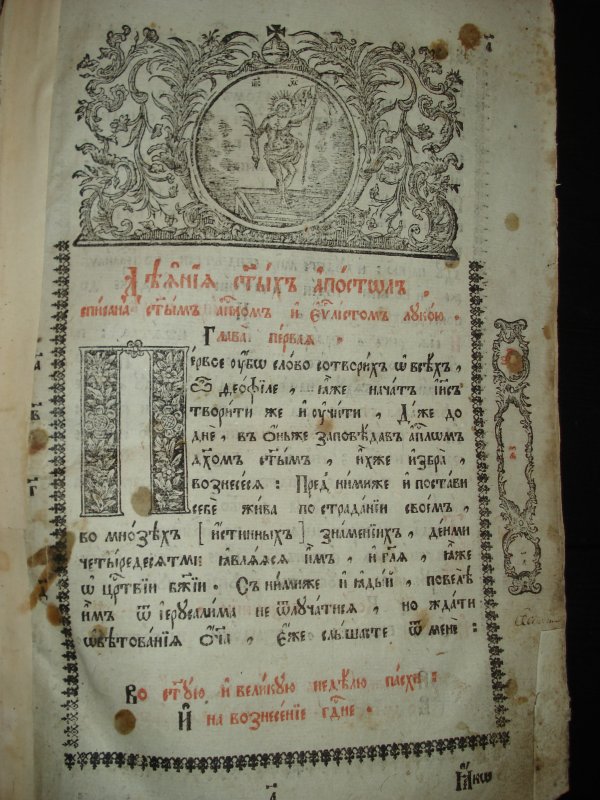 Дѣѧ҆нїѧ ст҃ы́хъ а҆по́столъ.
спи́сана ст҃ы́мъ а҆пⷭ҇ломъ и҆ є҆ѵⷢ҇лі́стомъ лꙋко́ю.
Глава̀ пе́рваѧ
Пе́рвое ᲂу҆́бѡ сло́во сотвори́хъ ѡ҆ всѣ́хъ,
ѽ ѳео́філе, ꙗ҆̀же нача́тъ і҆и҃съ
твори́ти же и҆ ᲂу҆чи́ти, Да́же до
днѐ, въ ѻ҆́ньже заповѣ́давъ а҆пⷭ҇лѡмъ
дх҃омъ ст҃ы́мъ, и҆̀хже и҆збра̀,
вознесе́сѧ: Пред̾ ни́миже и҆ поста́ви
себѐ жи́ва по страда́нїи свое́мъ,
во мно́зѣхъ [ и҆́стинныхъ ] зна́менїихъ, де́ньми
четы́редесѧтми ꙗ҆влѧ́ѧсѧ и҆̀мъ, и҆ гл҃ѧ, ꙗ҆̀же
ѡ҆ црⷭ҇твїи бж҃їи. Съ ни́миже и҆ ꙗ҆ды́й, повелѣ̀
и҆̀мъ ѿ і҆ерꙋсали́ма не ѿлꙋча́тисѧ, но жда́ти
ѡ҆бѣтова́нїѧ ѻ҆́ч҃а, є҆́же слы́шасте ѿ менѐ:
Во ст҃ꙋ́ю и҆ вели́кꙋю недѣ́лю па́схи:
И҆ на вознесе́нїе гдⷭ҇не.
Ꙗ҆́кѡ